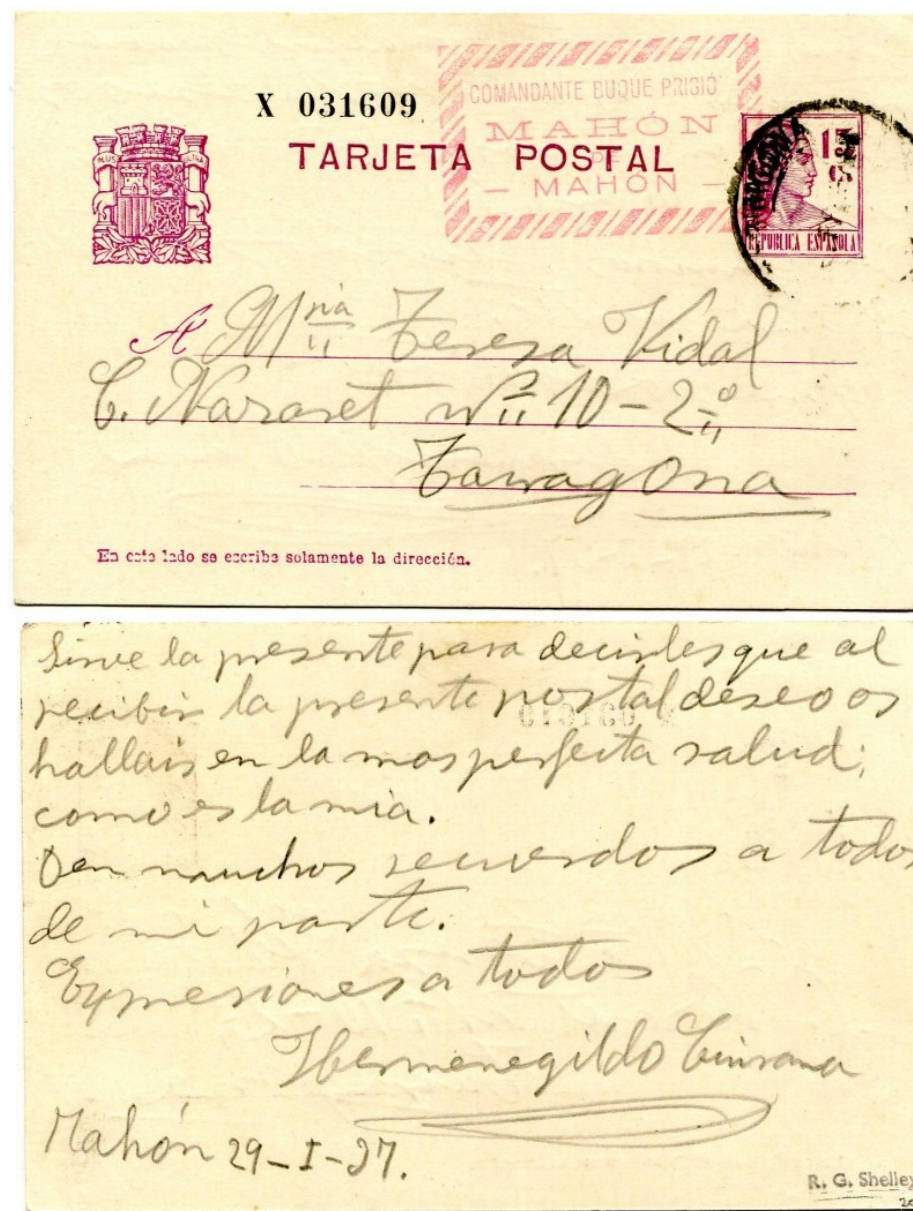 X 031609
COMANDANTE BUQUE PRISIÓ
MAHÓN
DE
— MAHÓN —
TARJETA POSTAL
PLUS ULTRA
15 Cs
REPUBLICA ESPAÑOLA
A Mría Teresa Vidal
C. Nazaret Nº 10-2º
Tarragona
En este lado se escribe solamente la dirección.
Sirve la presente para decirles que al
recibir la presente postal deseo os
hallais en la mas perfecta salud;
como es la mia.
Den muchos recuerdos a todos
de mi parte.
Expresiones a todos
Hermenegildo
Mahón 29-I-37.
R. G. Shelley